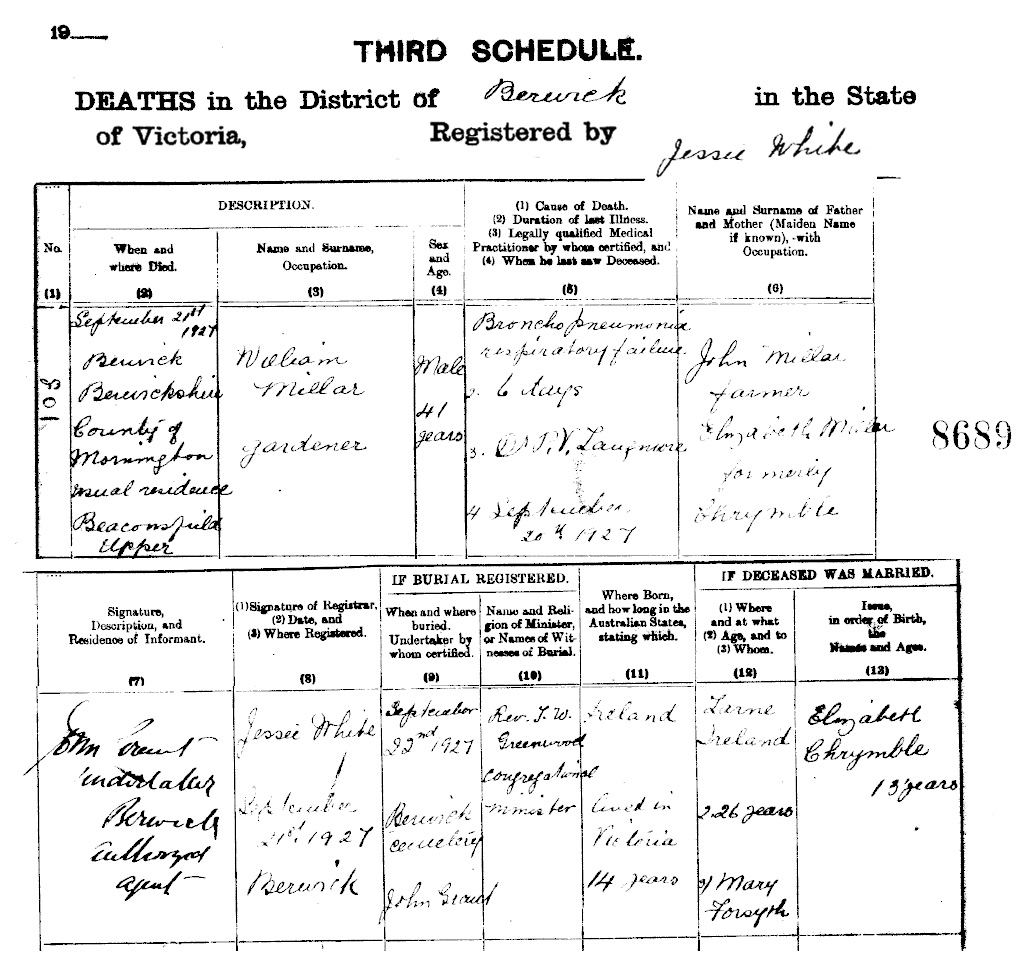 19
THIRD SCHEDULE.
DEATHS in the District of Berwick in the State
of Victoria, Registered by Jessie White
No.
(1)
DESCRIPTION.
When and
where Died.
(2)
Name and Surname,
Occupation.
(3)
Sex
and
Age.
(4)
(1) Cause of Death.
(2) Duration of last Illness.
(3) Legally qualified Medical
Practitioner by whom certified, and
(4) When he last saw Deceased.
(5)
Name and Surname of Father
and Mother (Maiden Name
if known), with
Occupation.
(6)
103
September 21st
1927
Berwick
Berwickshire
County of
Mornington
usual residence
Beaconsfield
Upper
William
Millar
gardener
Male
41
years
Bronchopneumonia
respiratory failure
2. 6 days
3. P. V.
4 September
20th 1927
John Millar
farmer
Elizabeth Millar
formerly
Chrymble
8689
Signature,
Description, and
Residence of Informant.
(7)
(1) Signature of Registrar,
(2) Date, and
(3) Where Registered.
(8)
IF BURIAL REGISTERED.
When and where
buried.
Undertaker by
whom certified.
(9)
Name and Reli-
gion of Minister,
or Names of Wit-
nesses of Burial.
(10)
Where Born,
and how long in the
Australian States,
stating which.
(11)
IF DECEASED WAS MARRIED.
(1) Where
and at what
(2) Age, and to
(3) Whom.
(12)
Issue,
in order of Birth,
the
Names and Ages.
(13)
John Grant
undertaker
Berwick
authorized
agent
Jessie White
September
21st 1927
Berwick
September
22nd 1927
Berwick
cemetery
John Grant
Rev. T. W.
Greenwood
congregational
minister
Ireland
lived in
Victoria
14 years
Larne
Ireland
2. 26 years
3) Mary
Forsyth
Elizabeth
Chrymble
13 years